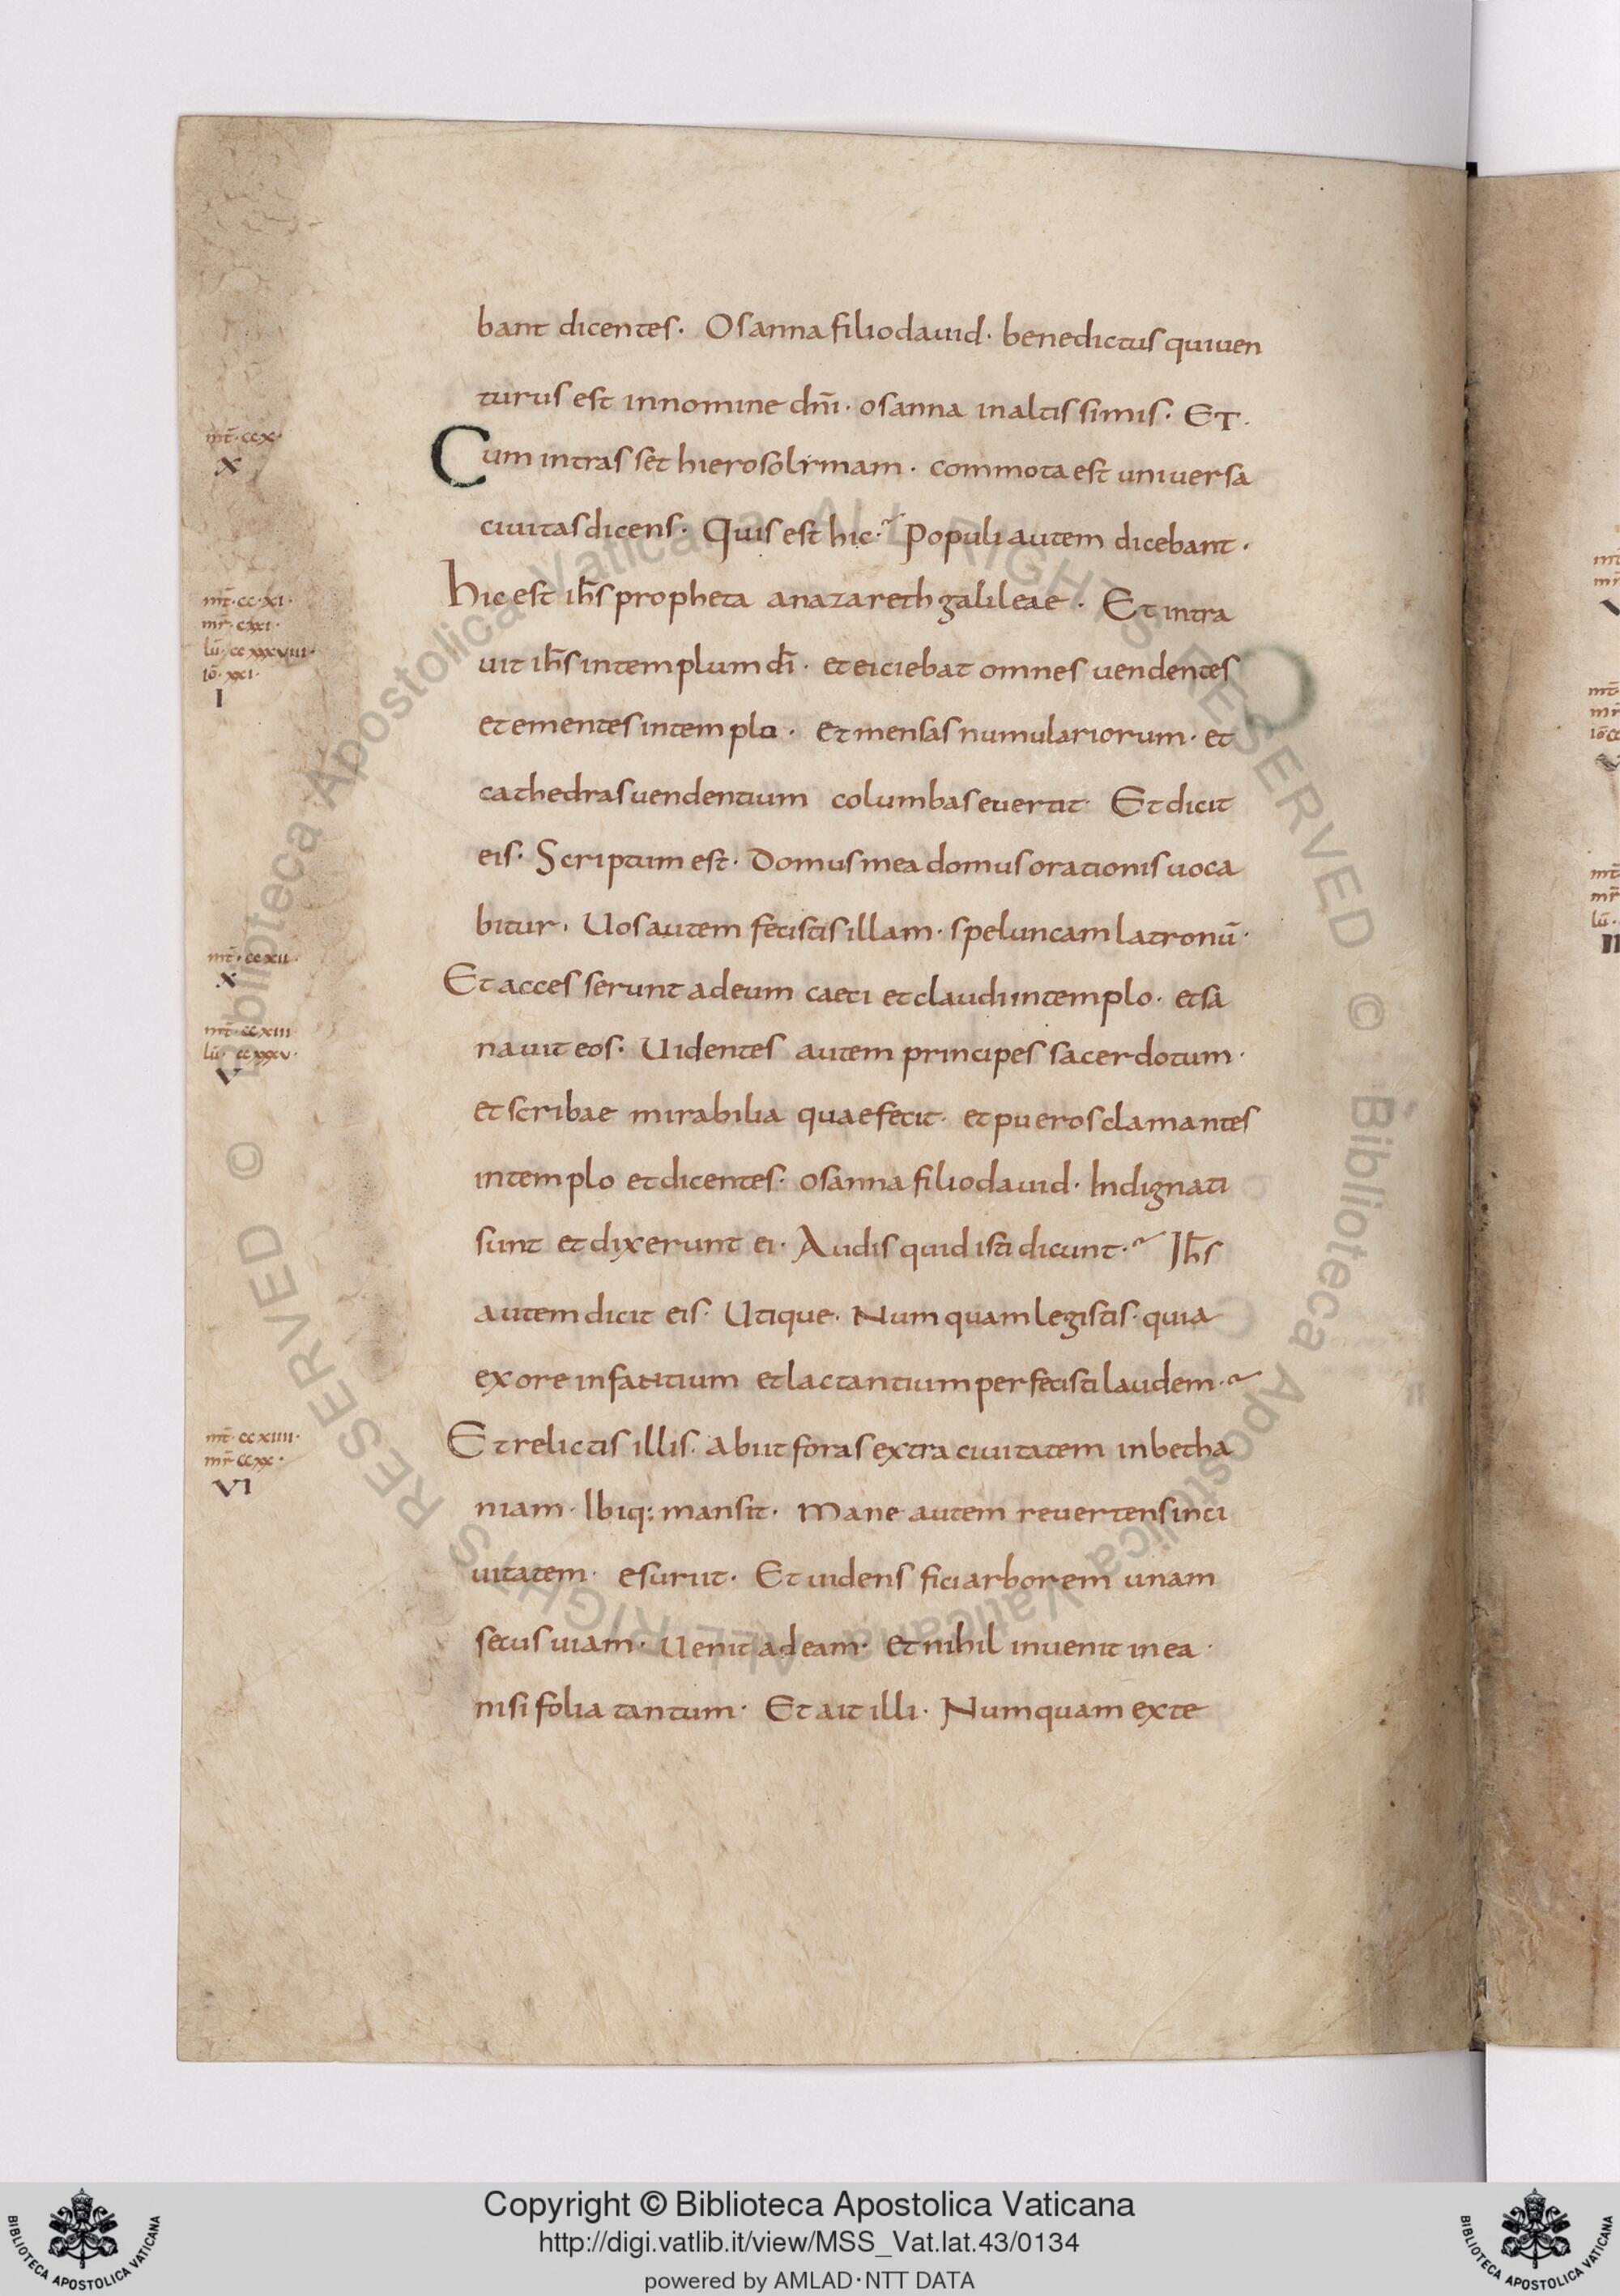 bant dicentes· Osanna filio dauid· benedictus qui uen
turus est in nomine dn̄i· osanna in altissimis· ET·
mt̄· ccx·
X
Cum intrasset hierosolymam· commota est uniuersa
ciuitas dicens· Quis est hic·~ Populi autem dicebant·
mt̄·cc·xi·
mr̄·cxxi·
lū·ccxxxviii·
iō·xxi·
I
hic est ih̄s propheta a nazareth galileae· Et intra
uit ih̄s in templum dī· et eiciebat omnes uendentes
et ementes in templo· et mensas numulariorum· et
cathedras uendentium columbas euertit· Et dicit
eis· Scriptum est· Domus mea domus orationis uoca
bitur· Uos autem fecistis illam· speluncam latronū·
mt̄·ccxii·
X
Et accesserunt ad eum caeci et claudi in templo· et sa
mt̄·ccxiii
lū·ccxxxv·
V
nauit eos· Uidentes autem principes sacerdotum·
et scribae mirabilia quae fecit· et pueros clamantes
in templo et dicentes· osanna filio dauid· Indignati
sunt et dixerunt ei· Audis quid isti dicunt·~ Ih̄s
autem dicit eis· Utique· Numquam legistis· quia
ex ore infantium et lactantium perfecisti laudem·~
mt̄·ccxiiii·
mr̄·ccxx·
VI
Et relictis illis· abiit foras extra ciuitatem in betha
niam· Ibiq: mansit· Mane autem reuertens in ci
uitatem· esuriit· Et uidens fici arborem unam
secus uiam· Uenit ad eam· et nihil inuenit in ea·
nisi folia tantum· Et ait illi· Numquam ex te
Copyright © Biblioteca Apostolica Vaticana
http://digi.vatlib.it/view/MSS_Vat.lat.43/0134
powered by AMLAD·NTT DATA
BIBLIOTECA APOSTOLICA VATICANA
BIBLIOTECA APOSTOLICA VATICANA
© Biblioteca Apostolica Vaticana ALL RIGHTS RESERVED
© Biblioteca Apostolica Vaticana ALL RIGHTS RESERVED